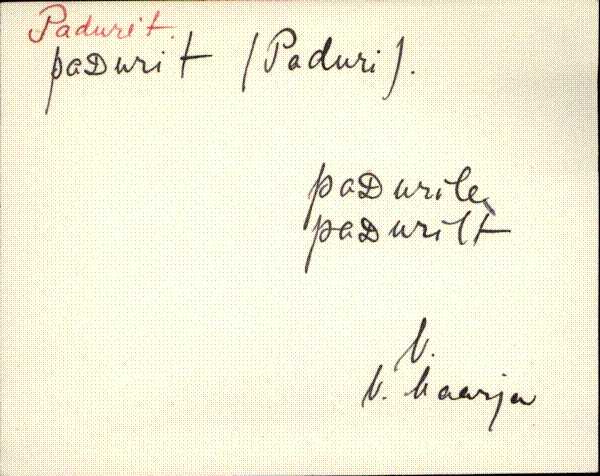 Padurit.
paDurit (Paduri).
paDurile
paDurilt
V.
V. Maarja